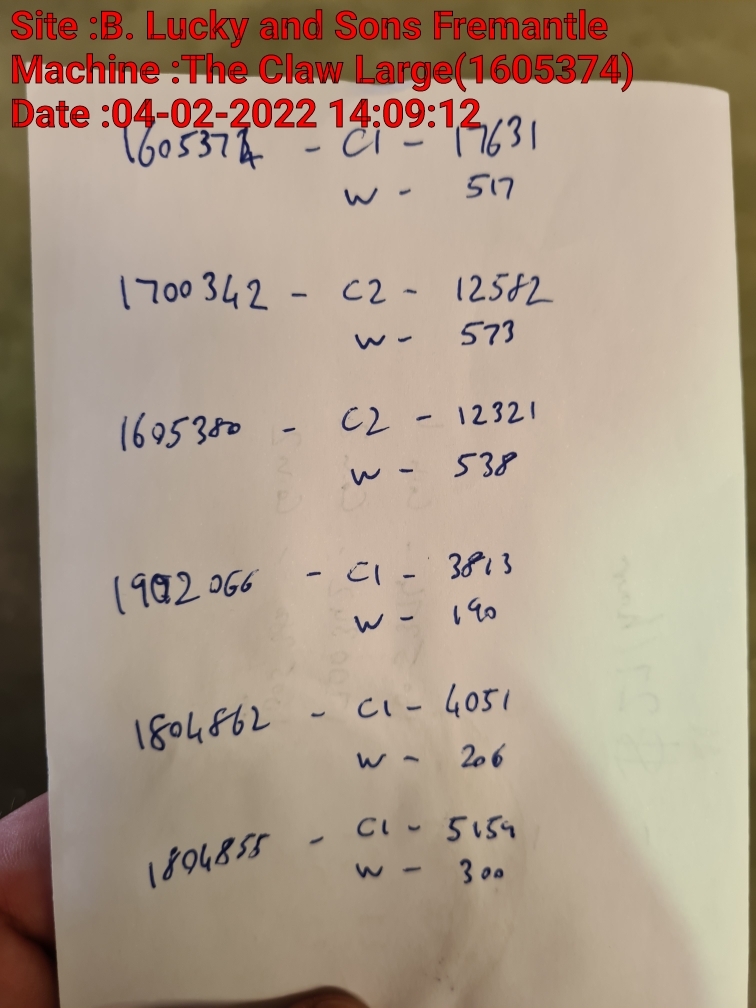 Site :B. Lucky and Sons Fremantle
Machine :The Claw Large(1605374)
Date :04-02-2022 14:09:12
1605374 - C1 - 17631
W - 517
1700342 - C2 - 12582
W - 573
1605380 - C2 - 12321
W - 538
1902066 - C1 - 3813
W - 190
1804862 - C1 - 4051
W - 206
1804855 - C1 - 5159
W - 300